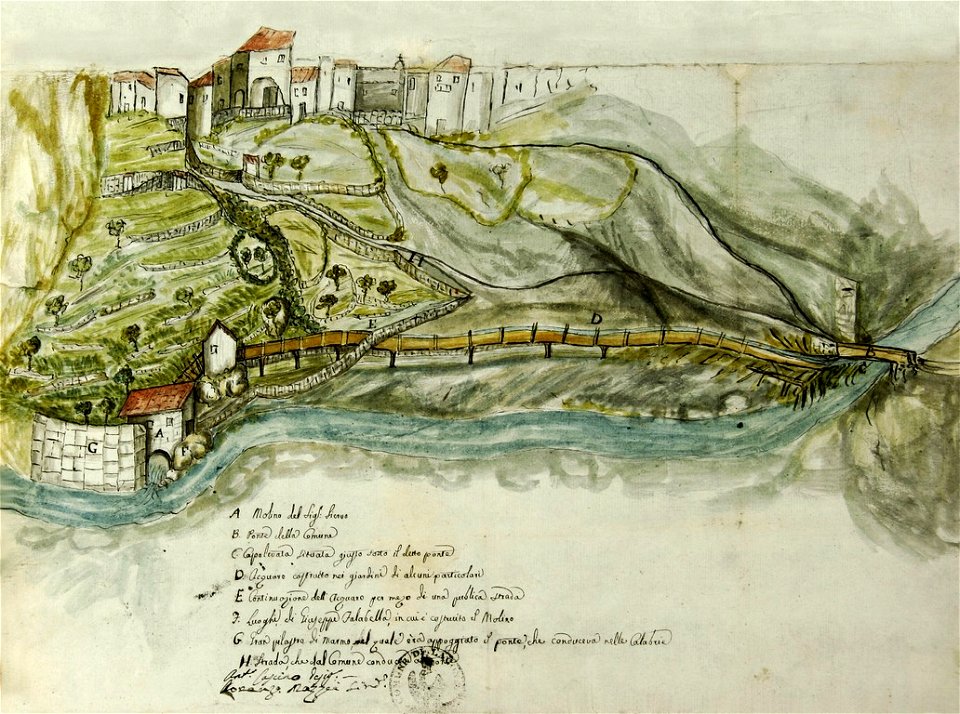 H
E
D
G
B
G
A
F
A Molino del Sig.r
B Ponte della Comune
C Capolevata situata giusto sotto il detto ponte
D Acquaro costrutto nei giardini di alcuni particolari
E Continuazione dell Acquaro per mezo di una publica strada
F Luoghi di Giuseppe Falabella, in cui è costruito il Molino
G Gran pilastro di Marmo nel quale era appoggiato il ponte, che conduceva nelle Calabrie
H Strada che dal Comune conduce a
COMUNE DI